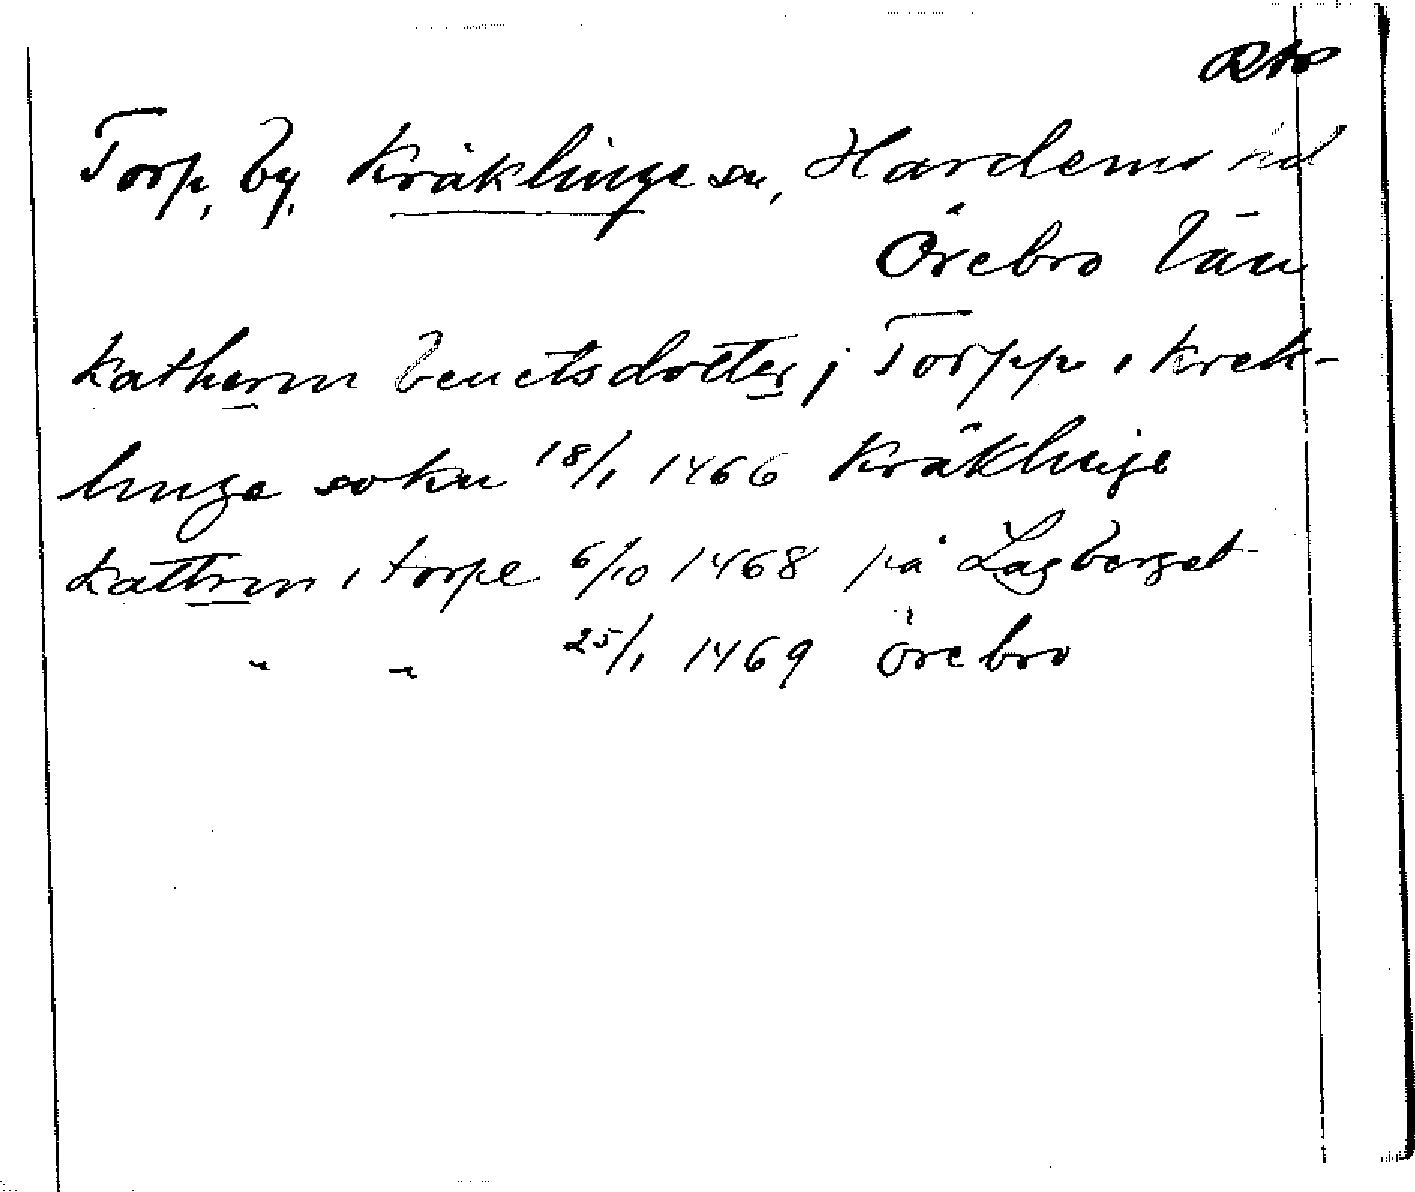 Torp, by, Kräklinge sn, Hardemo hd
Örebro län
katherin benctsdotter j Torpp i krek-
linge sokn 18/1 1466 Kräklinge
kattrin i torpe 6/10 1468 på Lagberget
" " 25/1 1469 Örebro